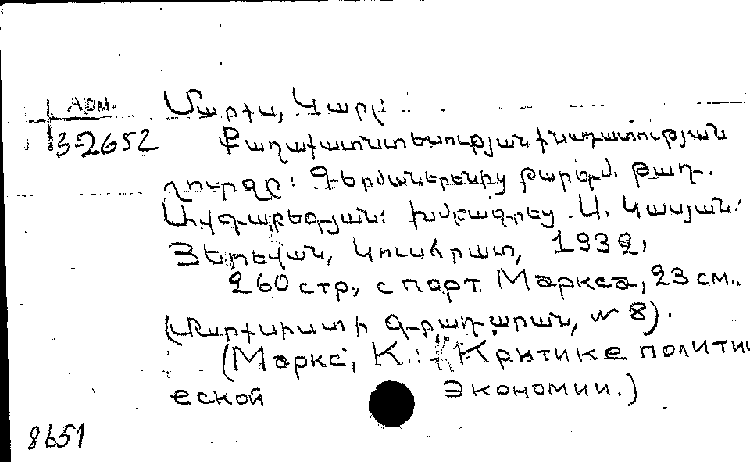 Арм. Մարքս, Կարլ
3-2652 Քաղաքատնտեսության քննադատության
շուրջը: Գերմաներենից թարգմ. Թադ.
Ավդալբեգյան: Խմբագրեց Ա. Կասյան:
Յերեվան, Կուսհրատ, 1932:
260 стр., с порт. Маркса, 23 см.
(Մարքսիստի գրադարան, № 8).
(Маркс, К.: К Критике полити
еской экономии.)
8651